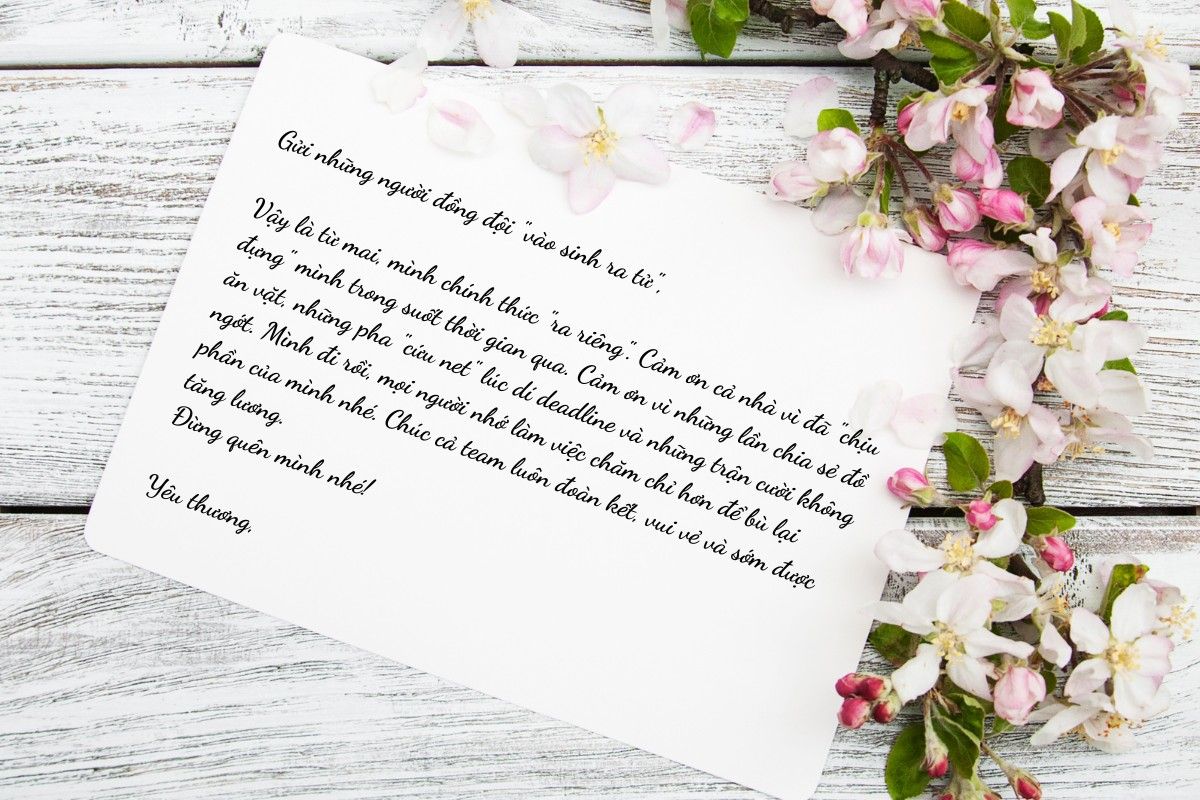 Gửi những người đồng đội "vào sinh ra tử",
Vậy là từ mai, mình chính thức "ra riêng". Cảm ơn cả nhà vì đã "chịu
đựng" mình trong suốt thời gian qua. Cảm ơn vì những lần chia sẻ đồ
ăn vặt, những pha "cứu net" lúc dí deadline và những trận cười không
ngớt. Mình đi rồi, mọi người nhớ làm việc chăm chỉ hơn để bù lại
phần của mình nhé. Chúc cả team luôn đoàn kết, vui vẻ và sớm được
tăng lương.
Đừng quên mình nhé!
Yêu thương,